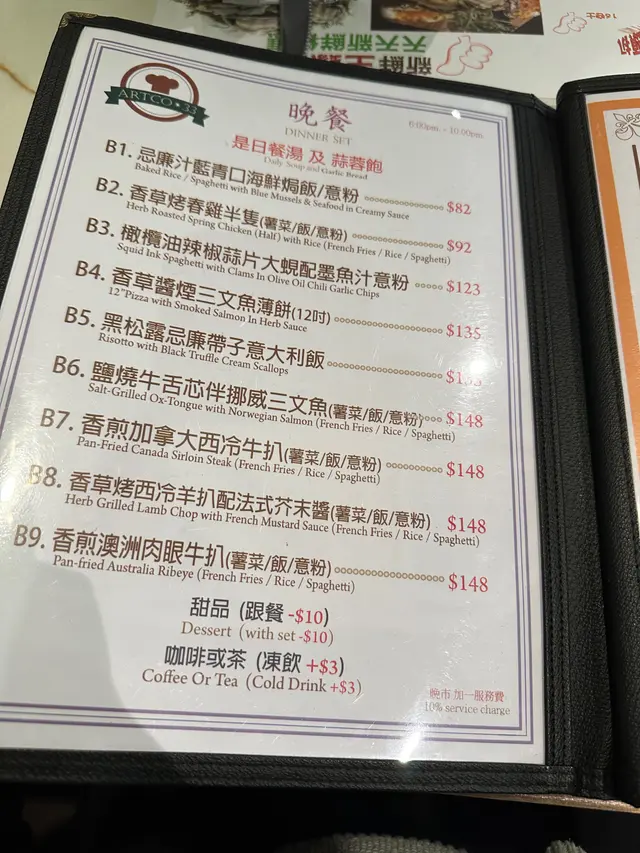 ARTCO • 33
晚餐
DINNER SET
6:00pm - 10:00pm
是日餐湯 及 蒜蓉飽
Daily Soup and Garlic Bread
B1. 忌廉汁藍青口海鮮焗飯/意粉 $82
Baked Rice / Spaghetti with Blue Mussels & Seafood in Creamy Sauce
B2. 香草烤春雞半隻(薯菜/飯/意粉) $92
Herb Roasted Spring Chicken (Half) with Rice (French Fries / Rice / Spaghetti)
B3. 橄欖油辣椒蒜片大蜆配墨魚汁意粉 $123
Squid Ink Spaghetti with Clams In Olive Oil Chili Garlic Chips
B4. 香草醬煙三文魚薄餅(12吋) $135
12"Pizza with Smoked Salmon In Herb Sauce
B5. 黑松露忌廉帶子意大利飯
Risotto with Black Truffle Cream Scallops
B6. 鹽燒牛舌芯伴挪威三文魚(薯菜/飯/意粉) $148
Salt-Grilled Ox-Tongue with Norwegian Salmon (French Fries / Rice / Spaghetti)
B7. 香煎加拿大西冷牛扒(薯菜/飯/意粉) $148
Pan-Fried Canada Sirloin Steak (French Fries / Rice / Spaghetti)
B8. 香草烤西冷羊扒配法式芥末醬(薯菜/飯/意粉) $148
Herb Grilled Lamb Chop with French Mustard Sauce (French Fries / Rice / Spaghetti)
B9. 香煎澳洲肉眼牛扒(薯菜/飯/意粉) $148
Pan-fried Australia Ribeye (French Fries / Rice / Spaghetti)
甜品 (跟餐 -$10)
Dessert (with set -$10)
咖啡或茶 (凍飲 +$3)
Coffee Or Tea (Cold Drink +$3)
晚市 加一服務費
10% service charge
天天新鮮